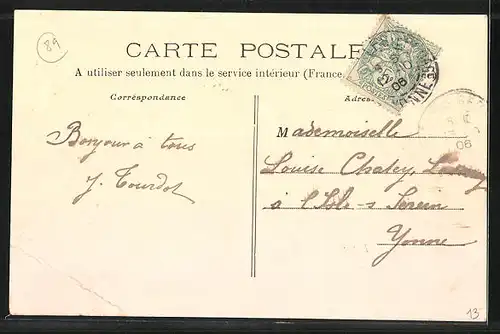 89
CARTE POSTALE
A utiliser seulement dans le service intérieur (France,
Correspondance
Adres
Bonjour à tous
J. Tourdot
Mademoiselle
Louise
à l'Isle-s Serein
Yonne
YONNE
06
06
13